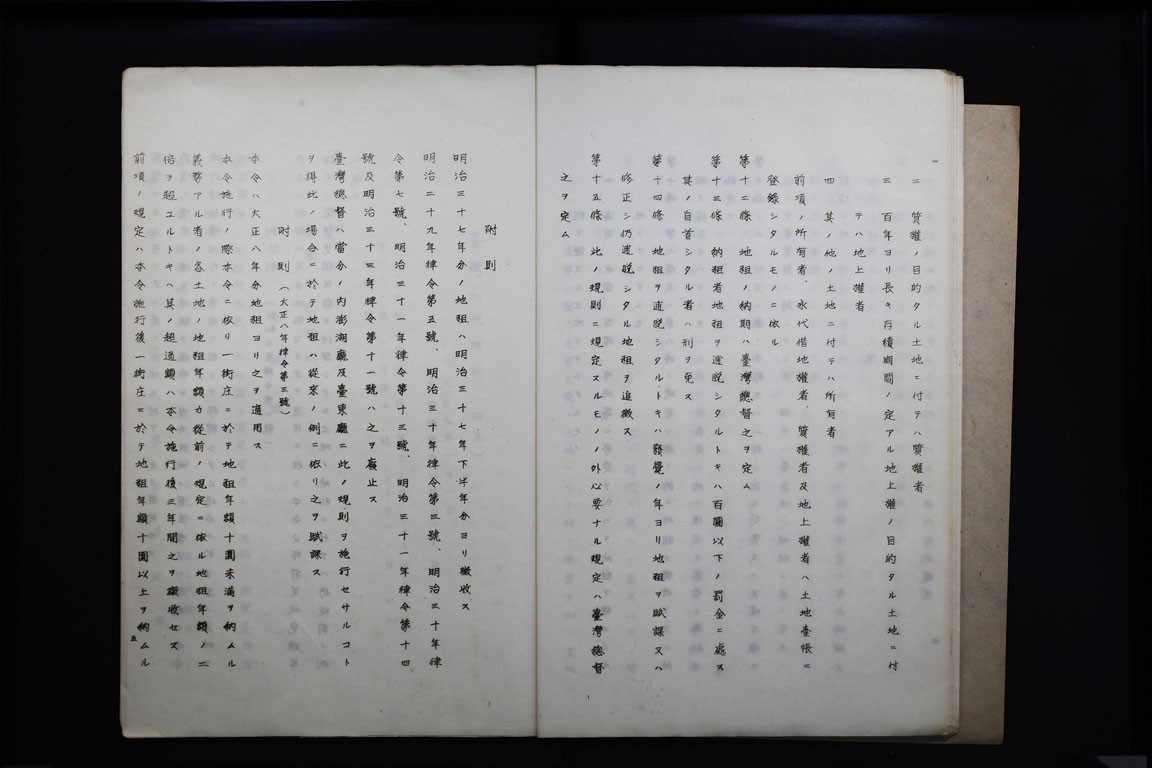 二 質權ノ目的タル土地ニ付テハ質權者
三 百年ヨリ長キ存續期間ノ定アル地上權ノ目的タル土地ニ付
テハ地上權者
四 其ノ他ノ土地ニ付テハ所有者
前項ノ所有者、永代借地權者、質權者及地上權者ハ土地臺帳ニ
登錄シタルモノニ依ル
第十二條 地租ノ納期ハ臺灣總督之ヲ定ム
第十三條 納租者地租ヲ逋脫シタルトキハ百圓以下ノ罰金ニ處ス
其ノ自首シタル者ハ刑ヲ免ス
第十四條 地租ヲ逋脫シタルトキハ發覺ノ年ヨリ地租ヲ賦課又ハ
修正シ仍逋脫シタル地租ヲ追徵ス
第十五條 此ノ規則ニ規定スルモノノ外必要ナル規定ハ臺灣總督
之ヲ定ム
附則
明治三十七年分ノ地租ハ明治三十七年下半年分ヨリ徵收ス
明治二十九年律令第五號、明治三十年律令第三號、明治三十年律
令第七號、明治三十一年律令第十三號、明治三十一年律令第十四
號及明治三十三年律令第十一號ハ之ヲ廢止ス
臺灣總督ハ當分ノ內澎湖廳及臺東廳ニ此ノ規則ヲ施行セサルコト
ヲ得此ノ場合ニ於テ地租ハ從來ノ例ニ依リ之ヲ賦課ス
附則（大正八年律令第三號）
本令ハ大正八年分地租ヨリ之ヲ適用ス
本令施行ノ際本令ニ依リ一街庄ニ於テ地租年額十圓未滿ヲ納ムル
義務アル者ノ各土地ノ地租年額カ從前ノ規定ニ依ル地租年額ノ二
倍ヲ超ユルトキハ其ノ超過額ハ本令施行後三年間之ヲ徵收セス
前項ノ規定ハ本令施行後一街庄ニ於テ地租年額十圓以上ヲ納ムル
五